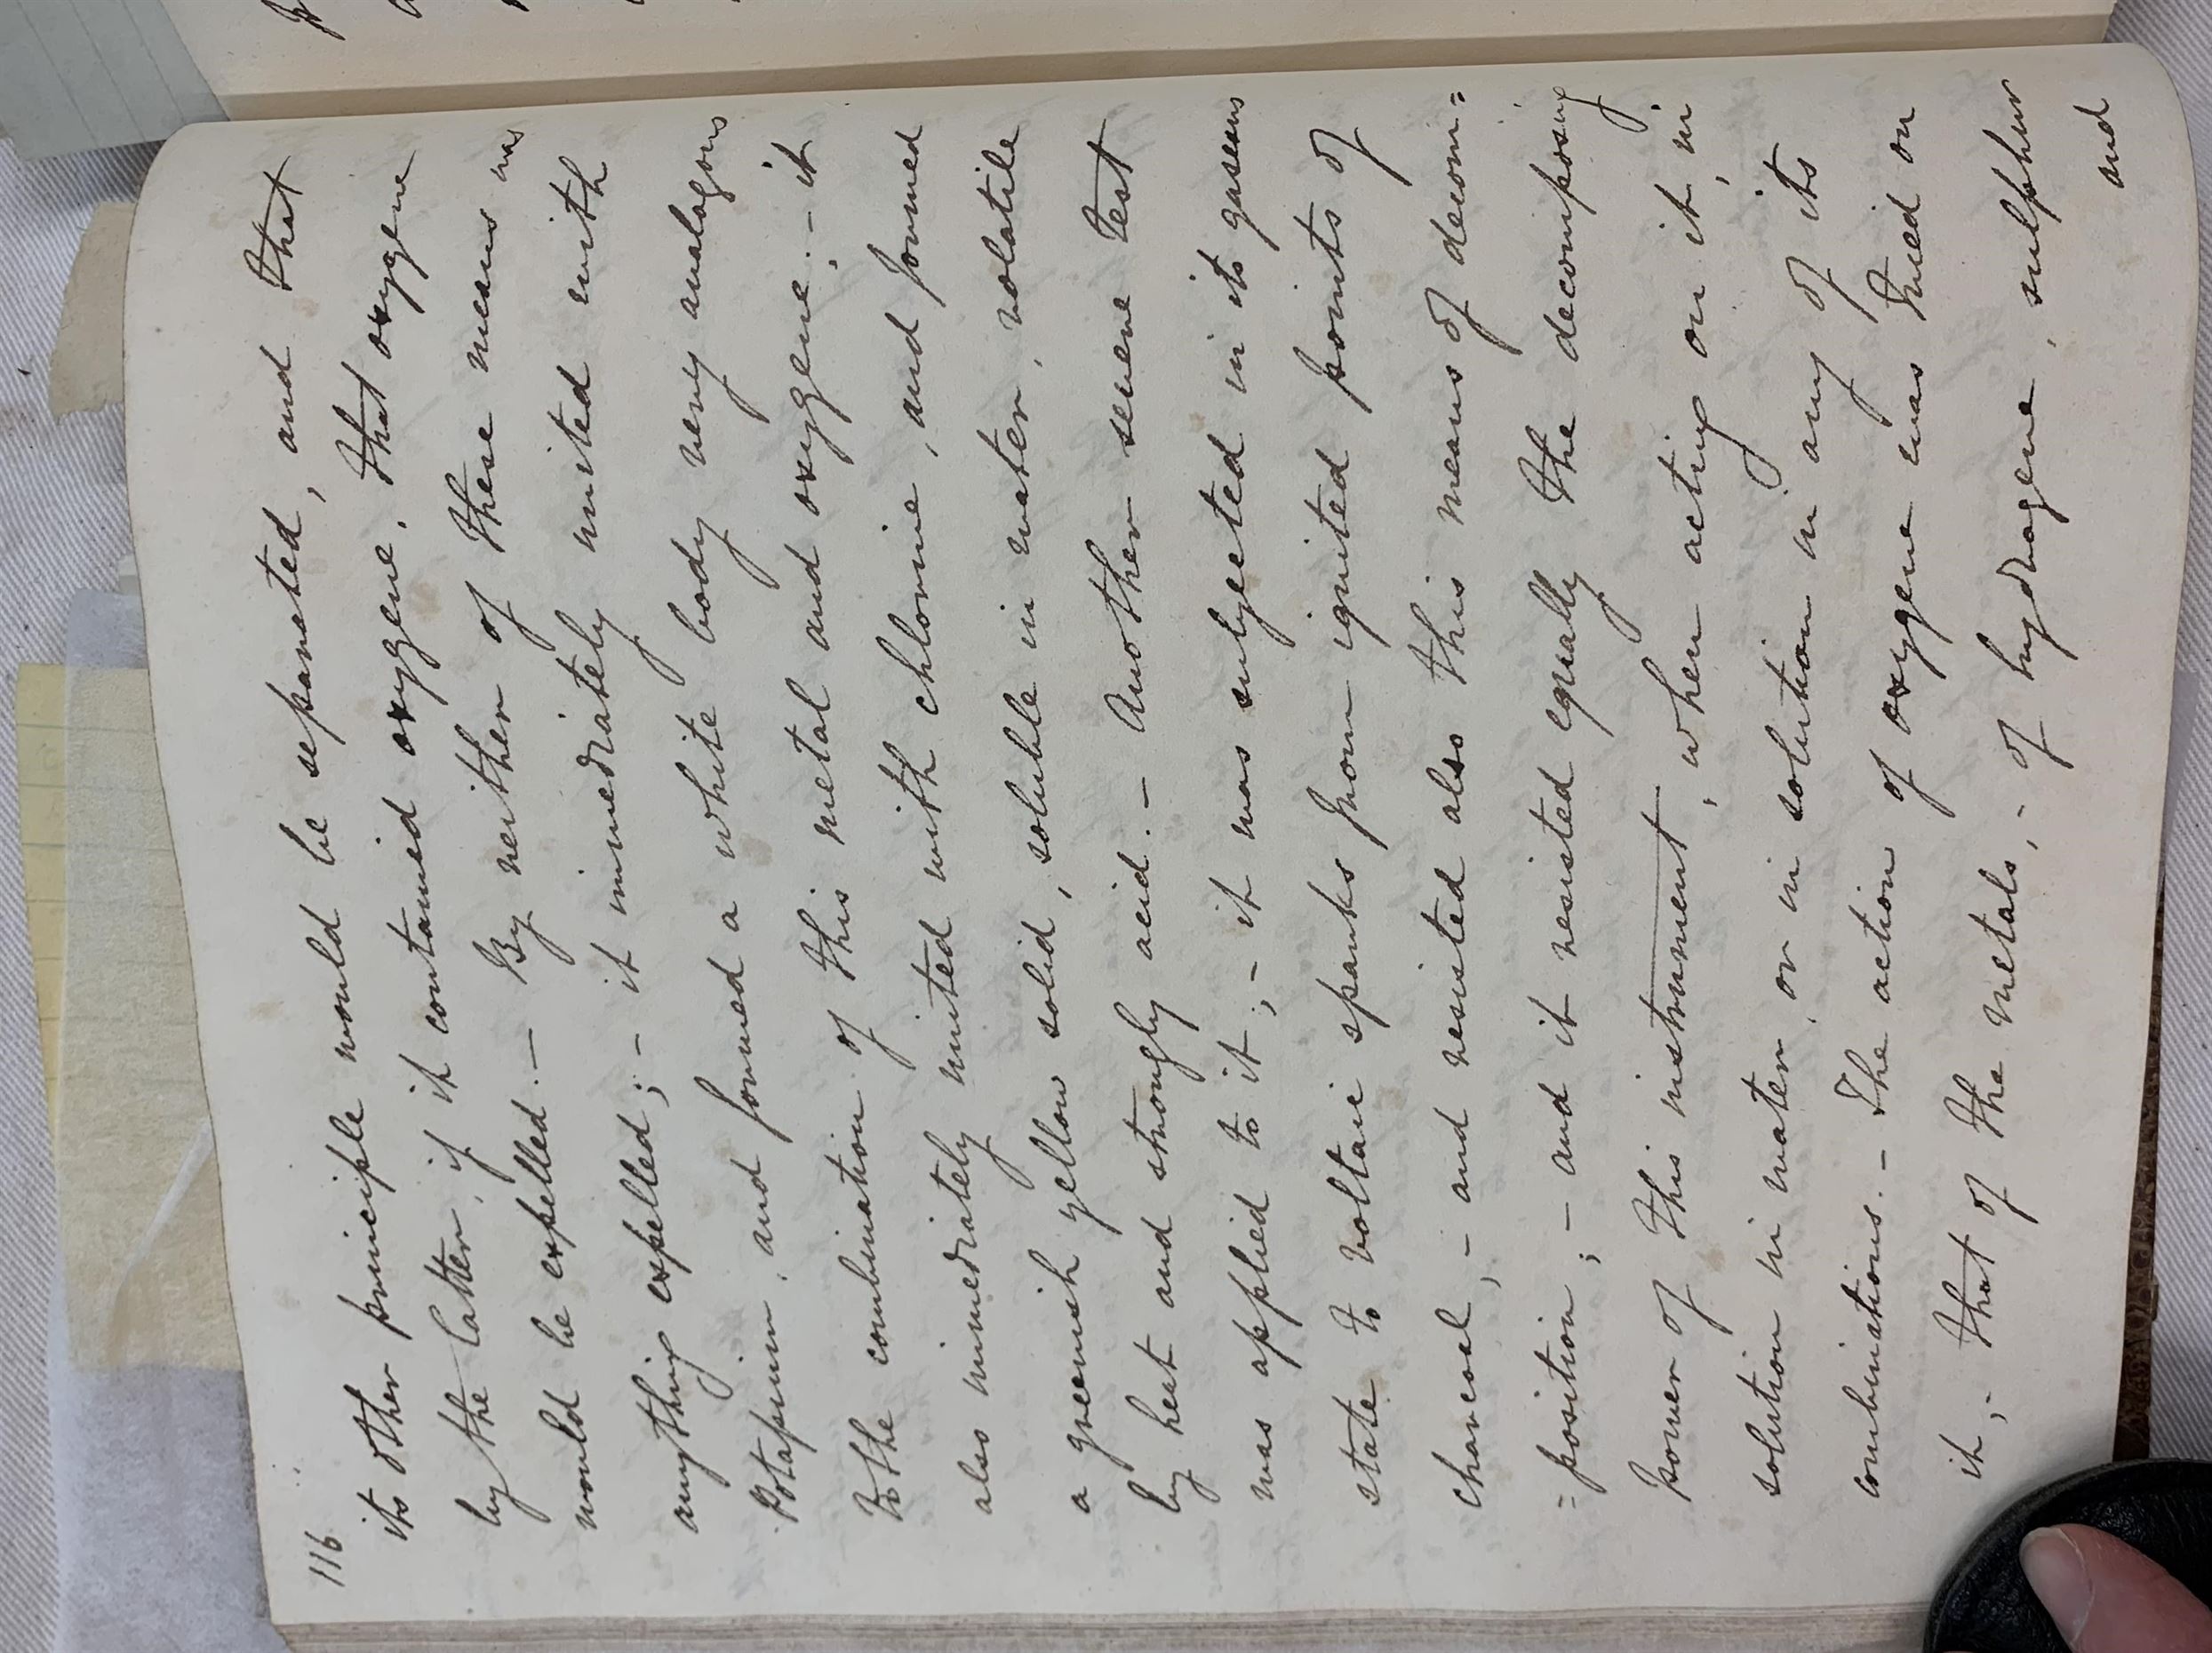 116
its other principle would be separated, and that
by the latter, if it contained oxygene, that oxygene
would be expelled. — By neither of these means was
anything expelled; – it immediately united with
Potapium, and formed a white body very analogous
to the combination of this metal and oxygene; – it
also immediately united with chlorine, and formed
a greenish yellow solid, soluble in water, volatile
by heat and strongly acid. – Another severe test
was applied to it; – it was subjected in its gaseous
state to voltaic sparks from ignited points of
charcoal, – and resisted also this means of decom=
=position; – and it resisted equally the decomposing
power of this instrument, when acting on it, in
solution in water, or in solution in any of its
combinations. – The action of oxygene was tried on
it, – that of the metals, – of hydrogene, sulphur
and